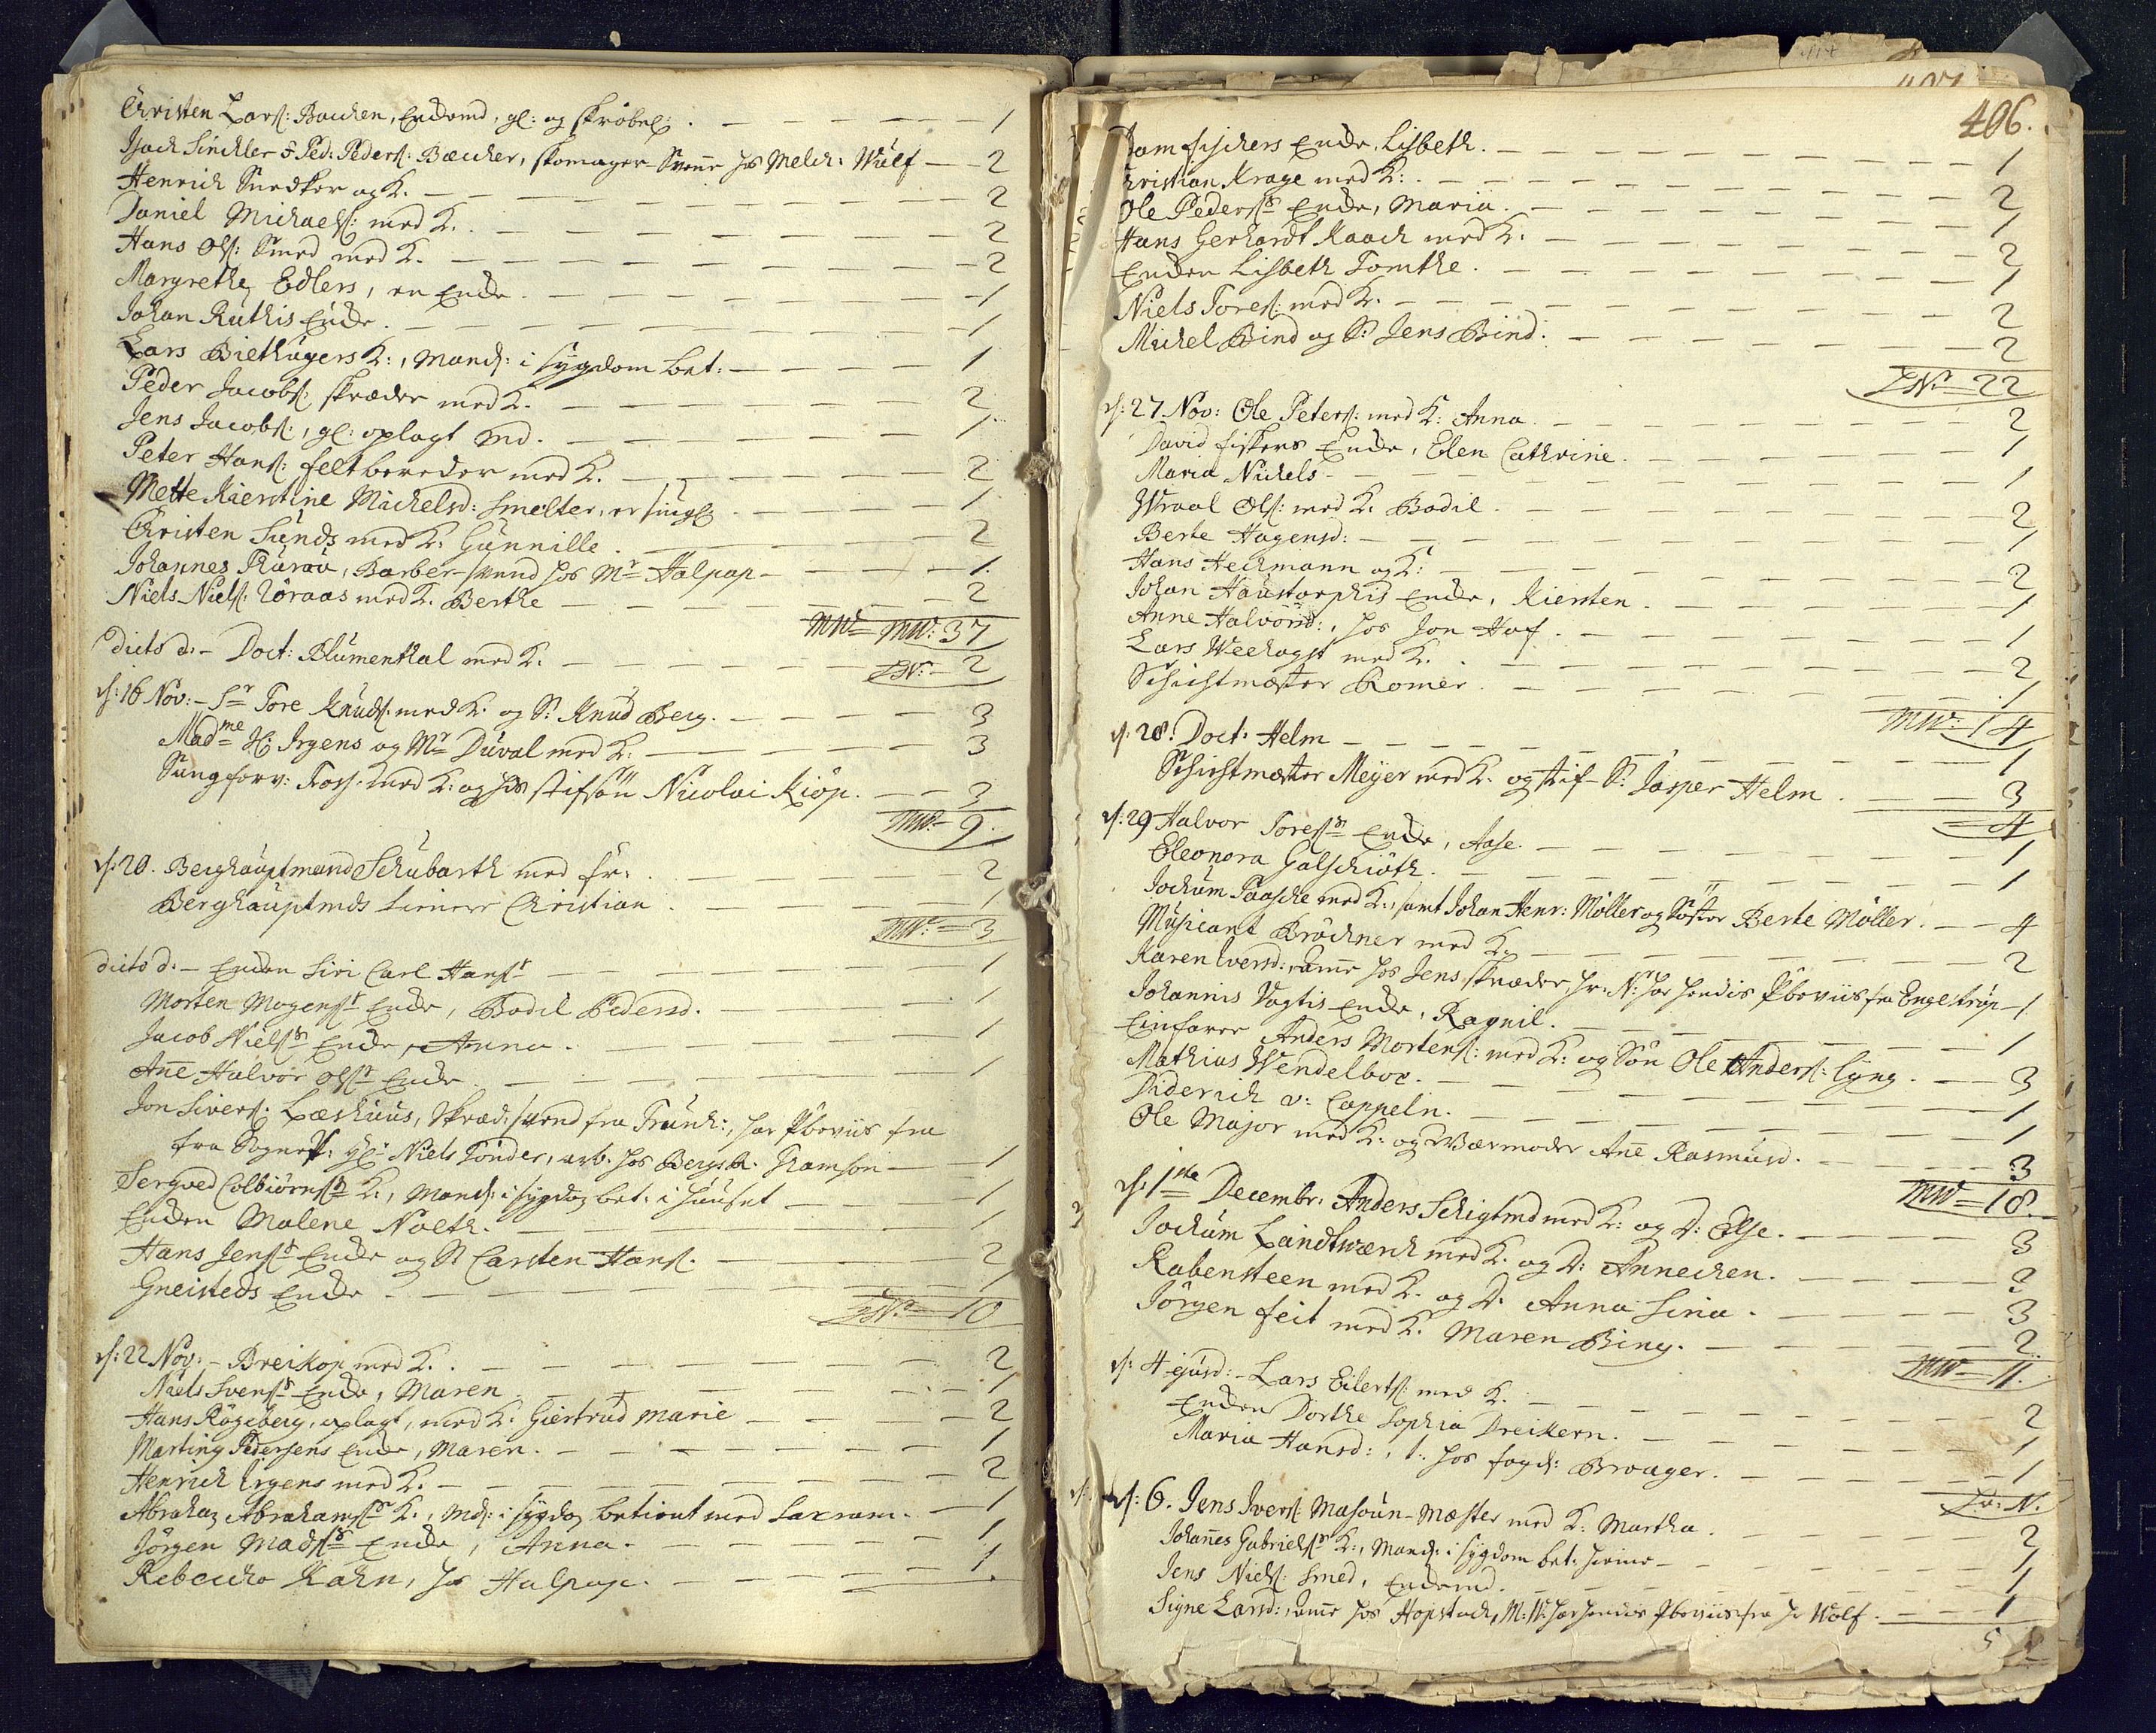 Christen Lars: Bachen, Enkemd, gl: og skrøbel: . — 1
Isach Sinckler & Ped: Peders: Bæcker, skomager Svenne hos Melch: Wulf — 2
Henrich Snedker og K. — 2
Daniel Michaels: med K. — 2
Hans Ols: Smed med K. — 2
Margrethe Edlers, en Enke. — 1
Johan Ruthis Enke. — 1
Lars Biethugers K:, Mands: i sygdom bet: — 1
Peder Jacobs: skræder med K. — 2
Jens Jacobs:, gl: oplagt Md. — 1
Peter Hans: feltbereder med K. — 2
Mette Kierstine Michelsd: Smelter, — 1
Christen Sunds med K. Gunnille. — 2
Johannes Thurau, Barber-svend hos Mr Halpap — 1.
Niels Niels: Röraas med K. Berthe — 2
MW: 37
dicto d. – Doct: Blumenthal med K. — 2
SN: – 2
d: 16 Nov: – Sr Tore Knuds: med K. og S: Knud Berg. — 3
Madme H: Irgens og Mr Duval med K: — 3
Tross. med K: og hds stifsön Nicolai Kiöp. — 3
MW – 9.
d: 20. Berghauptmand Schubarth med fr: . — 2
Berghauptmds Christian. — 1
MW: – 3
dicto d. – Enken Siri Carl Hansr — 1
Morten Mogensr Enke, Bodil Pedersd. — 1
Jacob Nielsr Enke, Anna. — 1
Ane Halvor Olsr Enke. — 1
Jon Sivers: Læshuus, Skræd: svend fra Trundh:, har Pbeviis fra
fra Sognepr: Hr: Niels Tönder, arb. hos Bergsk. Thamson — 1
Sergved Colbiörnsr K:, Mands: i sygdom bet: i huuset — 1
Enken Malene Nolth. — 1
Hans Jensr Enke og S: Carsten Hans. — 2
Gneisteds Enke — 1
SN: – 10
d: 22 Nov: – Breikop med K. — 2
Niels Svensr Enke, Maren — 1
Hans Rögeberg, oplagt, med K. Giertrud Marie — 2
Marting Pedersens Enke, Maren. — 1
Henrich Irgens med K. — 2
Abraham Abrahamsr K:, Mds: i sygdom betient med Sacram. — 1
Jörgen Madsr Enke, Anna. — 1
Rebecka Kahn, hos Halpap. — 1.
406.
fischers Enke, Lisbeth. — 1
Christian Krage med K: — 2
Ole Pedersr Enke, Maria. — 1
Hans Gerhardt Kaach med K. — 2
Enken Lisbeth Tomthe. — 1
Niels Tores: med K. — 2
Michel Bind og S: Jens Bind. — 2
SN: – 22
d: 27 Nov: Ole Peters: med K: Anna. — 2
David fiskers Enke, Elen Cathrine. — 1
Maria Nickels — 1
Wraal Ols: med K. Bodil — 2
Berte Hagensd: — 1
Hans Heckmann og K: — 2
Johan Haustorphis Enke, Kiersten — 1
Anne Halvorsd:, hos Jon Haf. — 1
Lars Weehagst med K. — 2
Schichtmæster Romer. — 1
MW: 14
d: 28. Doct: Helm — 1
Schichtmæster Meyer med K. og stif-S: Jasper Helm. — 3
– 4
d: 29 Halvor Toresr Enke, Aase. — 1
Eleonora Galschiöth. — 1
Jochum Paasche med K:, samt Johan Henr: Möller og Söster Berte Möller. — 4
Musicant Bröchner med K. — 2
Karen Iversd:, Amme hos Jens skræder, N: har hendis Pbeviis fra Engeströp — 1
Johannis Vogtis Enke, Ragnil. — 1
Einfarer Anders Mortens: med K: og Sön Ole Anders: Lyng. — 3
Mathias Wendelboe. — 1
Diderich v: Cappeln. — 1
Ole Major med K: og Wærmoder Ane Rasmusd. — 3
MW – 18.
d: 1ste Decembr: Anders Schigtmd med K: og D: Else. — 3
Jochum Landtwerch med K. og D: Annechen. — 3
Rabensteen med K. og D. Anna Sina. — 3
Jörgen feit med K. Maren Bing. — 2
MW – 11.
d: 4 ejusd: – Lars Eilerts: med K. — 2
Enken Dorthe Sophia Dreikern. — 1
Maria Hansd:, t: hos fogd: Broager. — 1
d: 6. Jens Ivers: Masoun-Mæster med K: Martha. — 2
Johanes Gabrielsr K:, Mands: i sygdom bet: hieme — 1
Jens Niels: Smed, Enkemd. — 1
Signe Larsd:, Amme hos Hopstoch, M: W: har hendes Pbeviis fra Hr Wolf. — 1
5